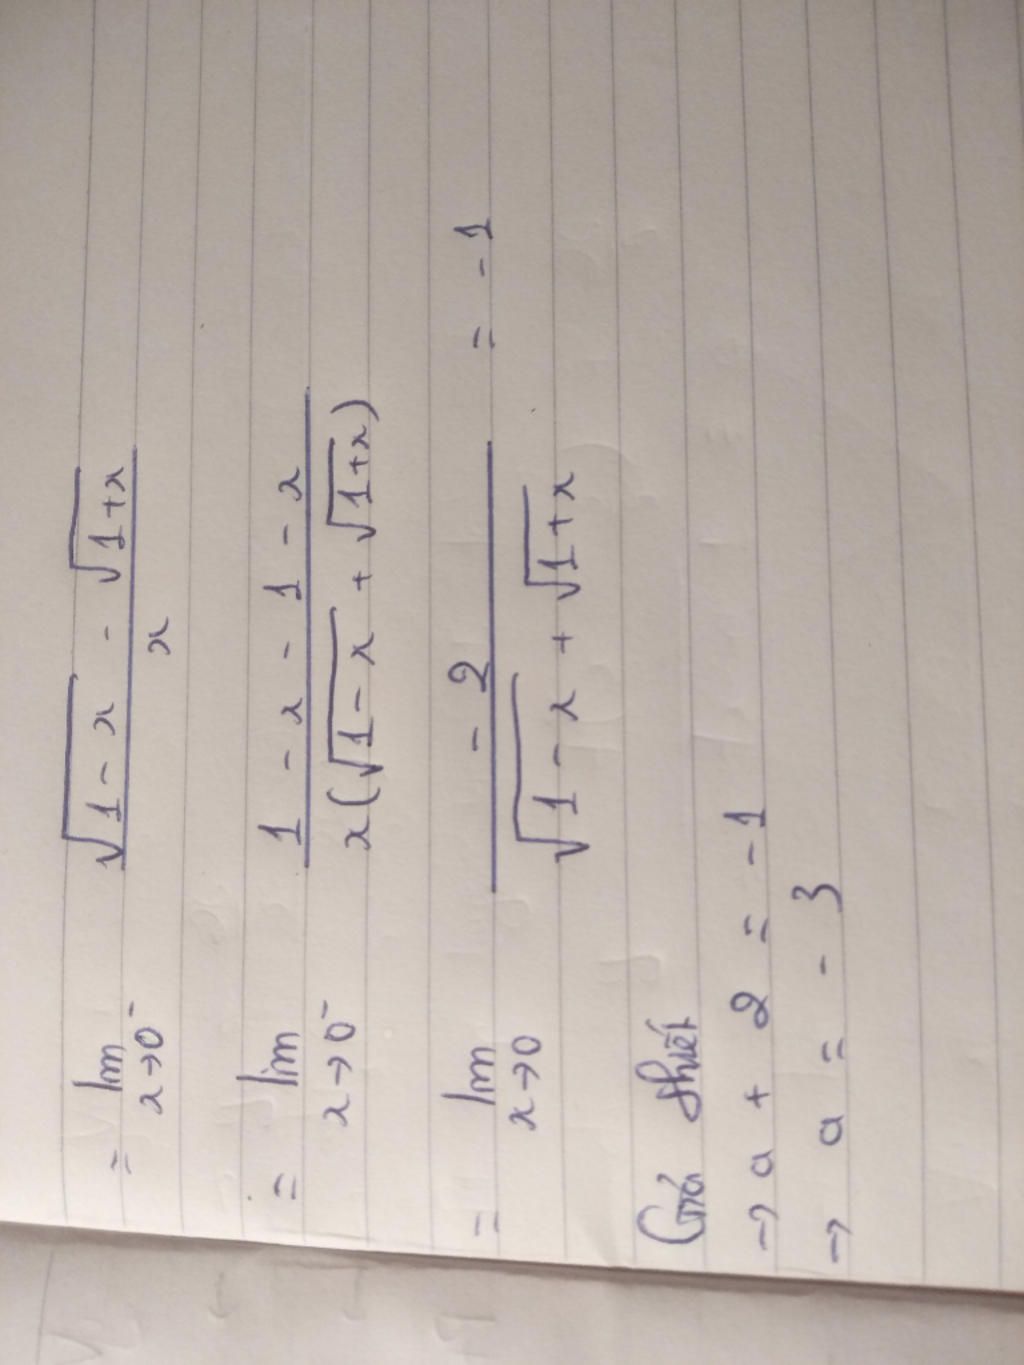 = lim x→0⁻ (√(1 - x) - √(1+x)) / x
= lim x→0⁻ (1 - x - 1 - x) / (x(√(1 - x) + √(1+x)))
= lim x→0 -2 / (√(1 - x) + √(1+x)) = -1
Giả thiết
→ a + 2 = -1
→ a = -3